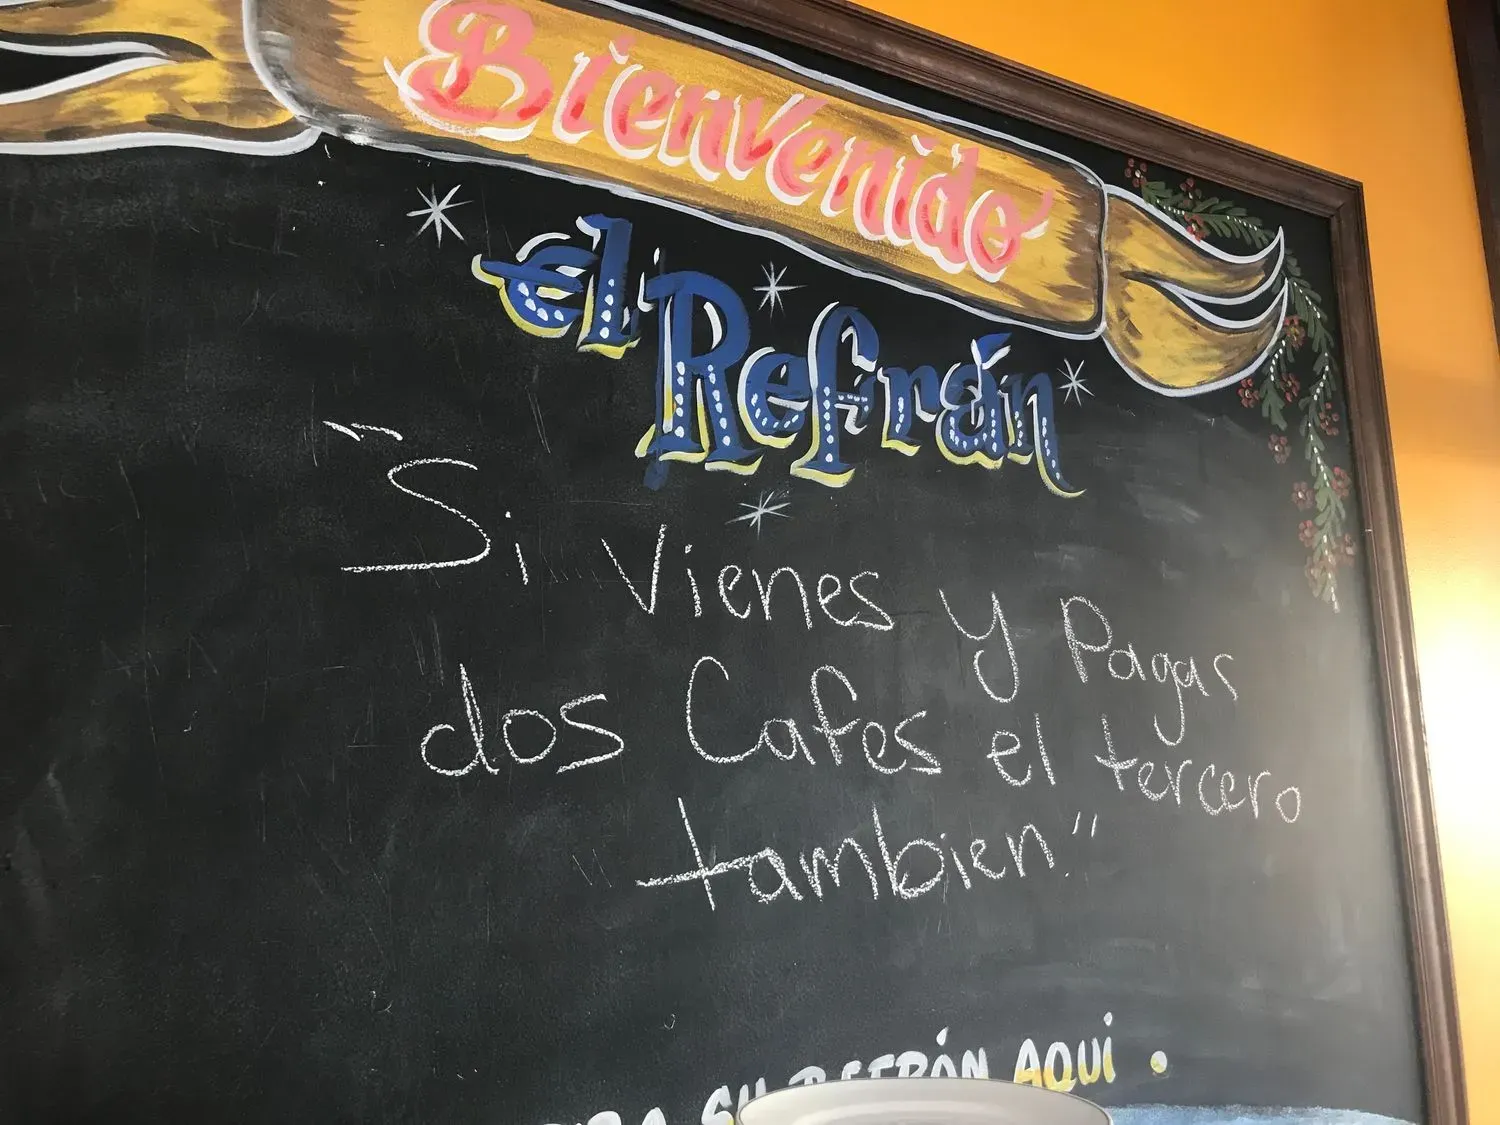 Bienvenido
el Refrán
"Si vienes y Pagas
dos Cafes el tercero
tambien."
SU REFRÁN AQUÍ.